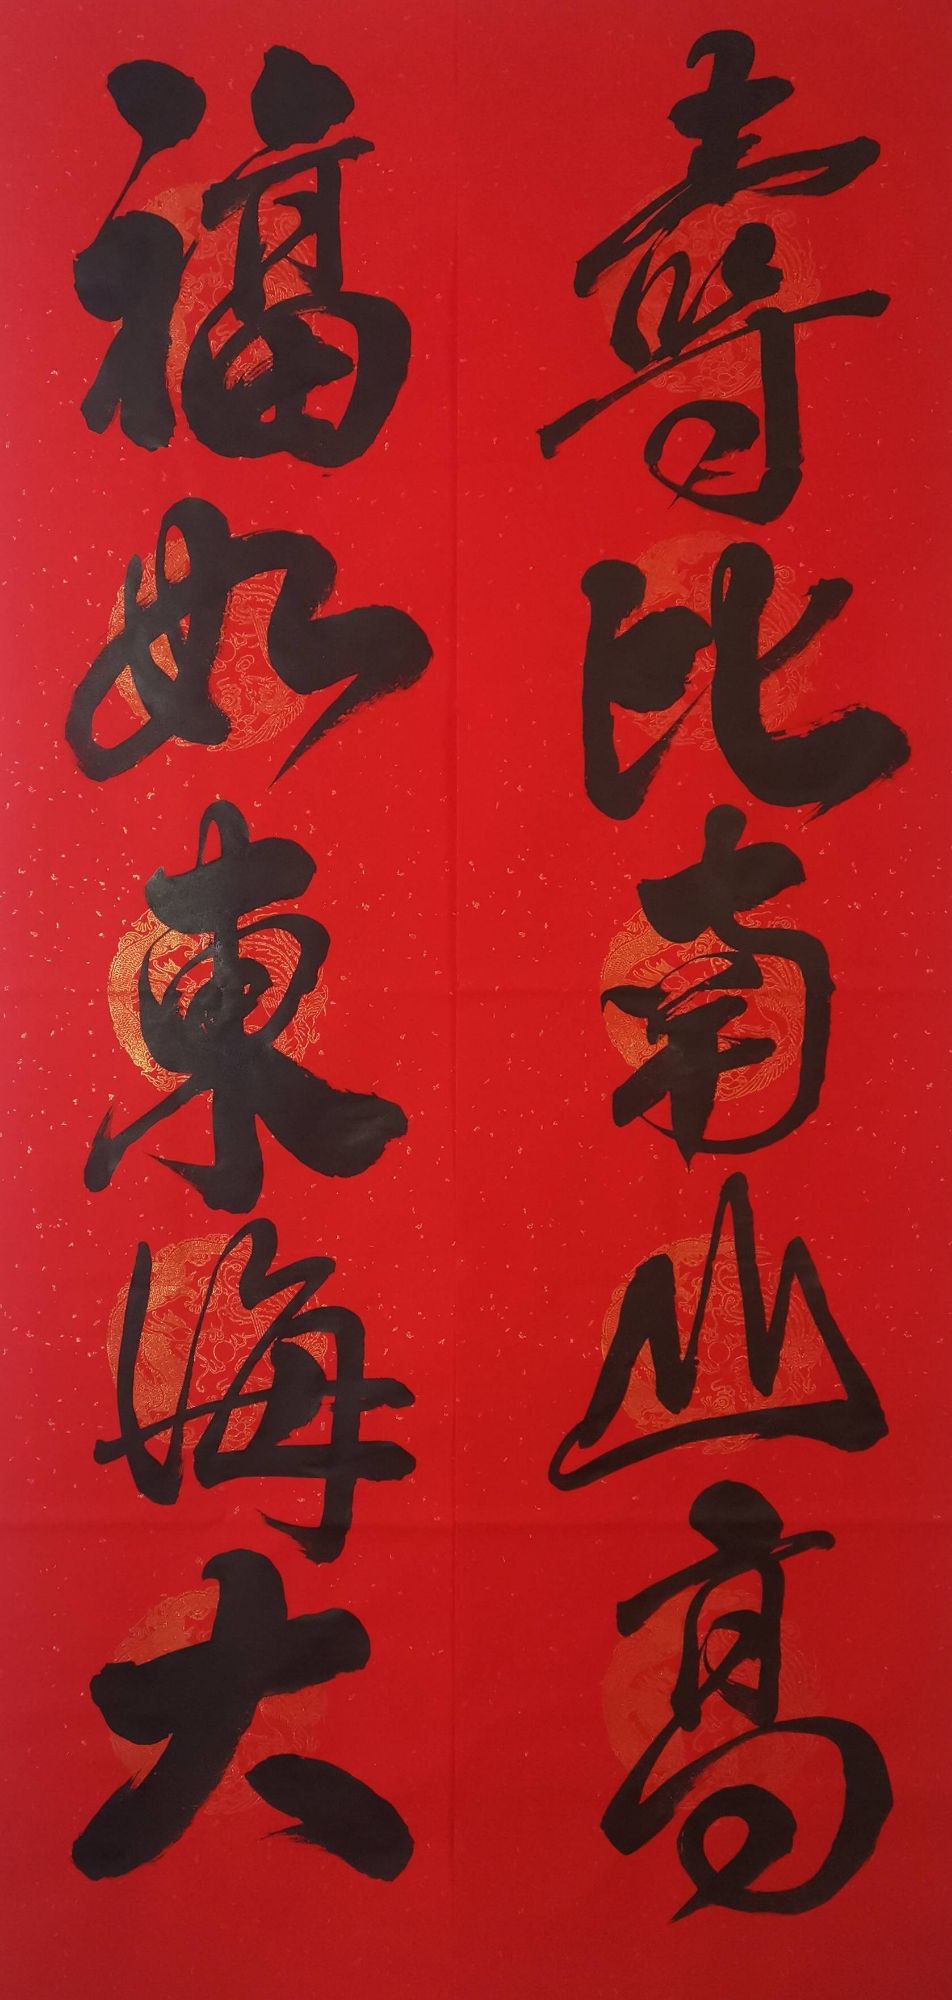 壽比南山高
福如東海大